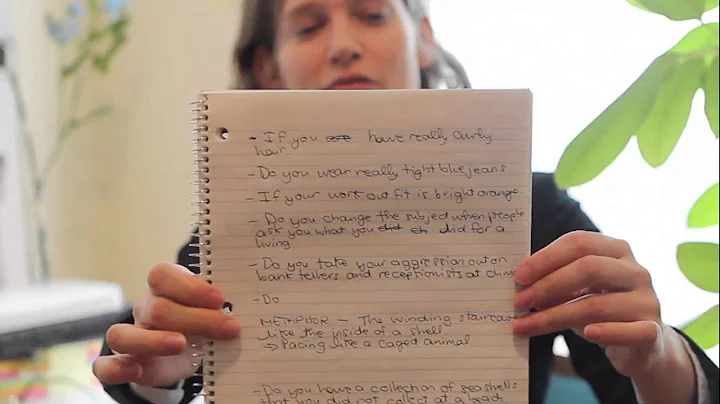 - If you have really curly
hair
- Do you wear really tight blue jeans
- If your work outfit is bright orange
- Do you change the subject when people
ask you what you did for a
living
- Do you take your aggression out on
bank tellers and receptionists at
- Do
METAPHOR - The winding staircase
like the inside of a shell
→ Pacing like a caged animal
- Do you have a collection of seashells
that you did not collect at a beach